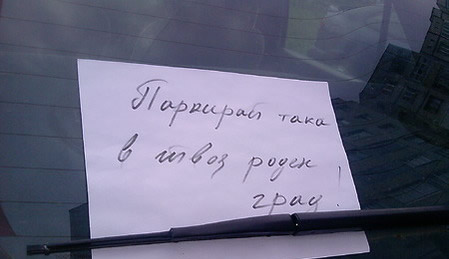 Паркирай така
в твоя роден
град!